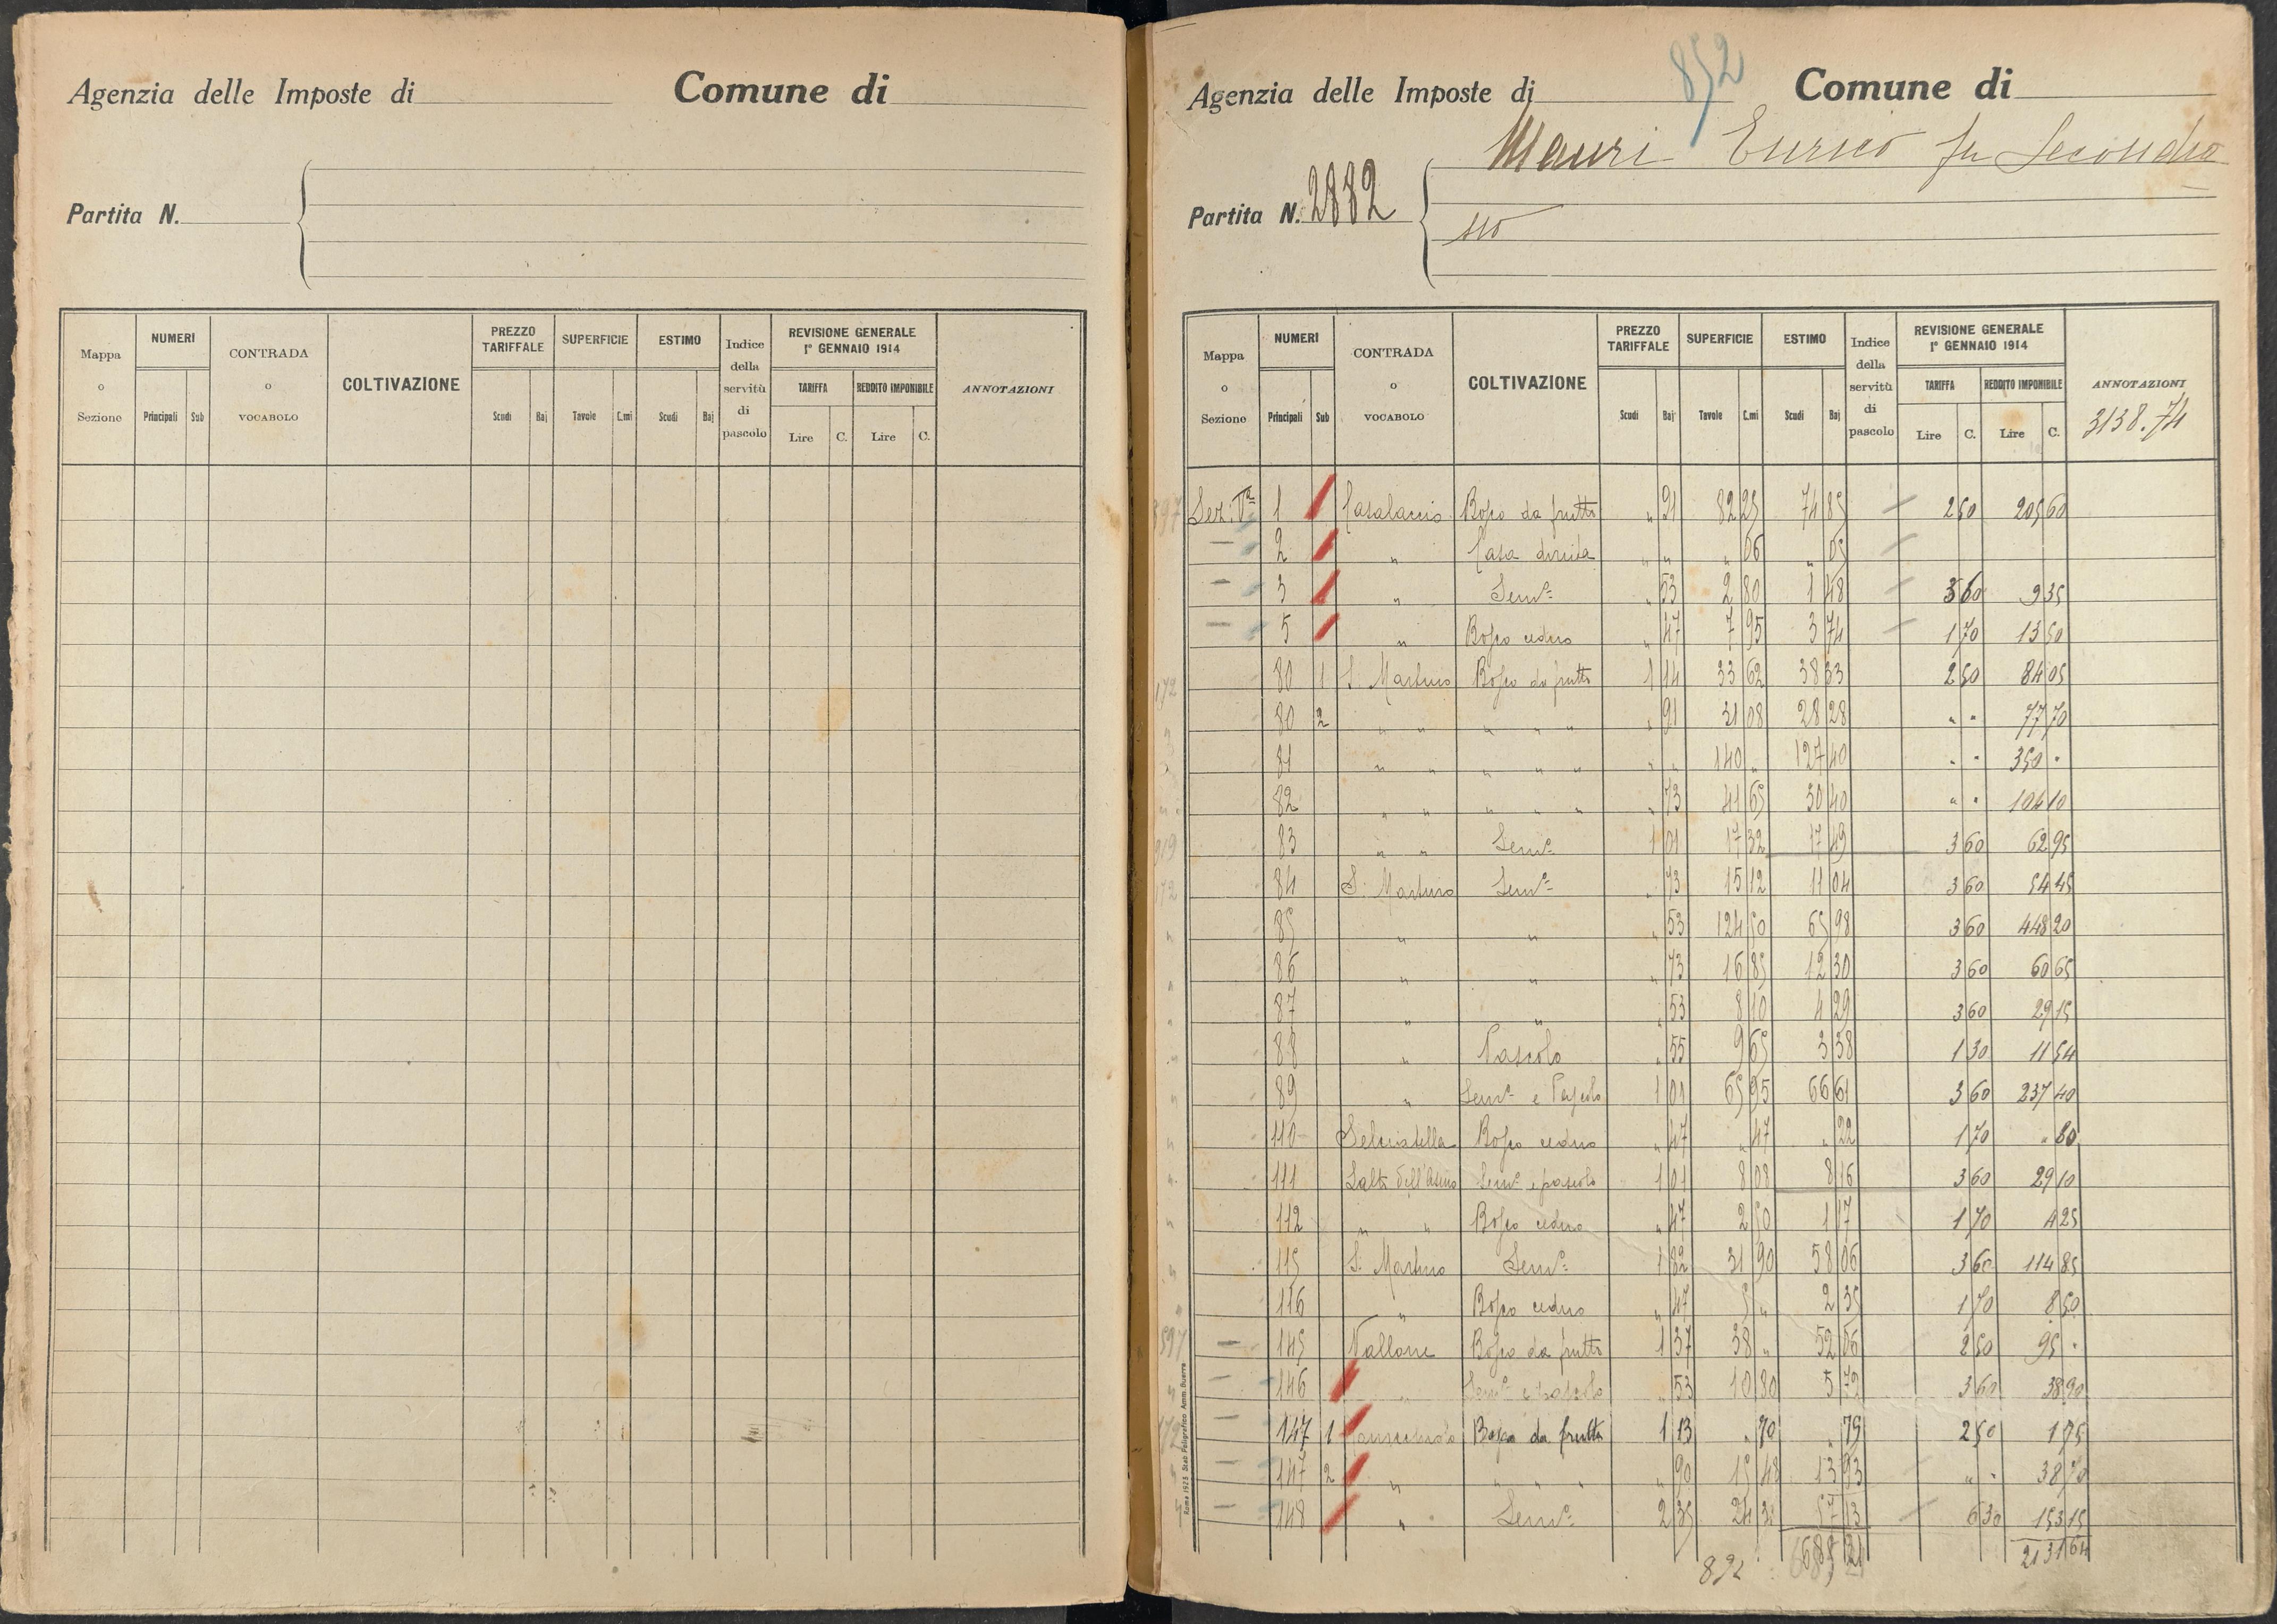 Agenzia delle Imposte di Comune di
Partita N.
Mappa o Sezione NUMERI Principali Sub CONTRADA o VOCABOLO COLTIVAZIONE PREZZO TARIFFALE Scudi Baj SUPERFICIE Tavole C.mi ESTIMO Scudi Baj Indice della servitù di pascolo REVISIONE GENERALE 1° GENNAIO 1914 TARIFFA Lire C. REDDITO IMPONIBILE Lire C. ANNOTAZIONI
852
Agenzia delle Imposte di Comune di
Mauri Enrico fu Secondia
Partita N. 2882
no
Mappa o Sezione NUMERI Principali Sub CONTRADA o VOCABOLO COLTIVAZIONE PREZZO TARIFFALE Scudi Baj SUPERFICIE Tavole C.mi ESTIMO Scudi Baj Indice della servitù di pascolo REVISIONE GENERALE 1° GENNAIO 1914 TARIFFA Lire C. REDDITO IMPONIBILE Lire C. ANNOTAZIONI
3138.74
Sez: Vª 1 Casalaccio Bosco da frutto " 91 82 25 74 85 2 50 205 60
2 " Casa diruta " " " 06 " 05
3 " Semº " 53 2 80 1 48 3 60 9 35
5 " Bosco ceduo " 47 7 95 3 74 1 70 13 50
80 1 S. Martino Bosco da frutto 1 14 33 62 38 33 2 50 84 05
80 2 " " " " " " 91 31 08 28 28 " " 77 70
81 " " " " " " " 140 " 127 40 " " 350 "
82 " " " " " " 73 41 65 30 40 " " 104 10
83 " " Semº 1 01 17 32 17 49 3 60 62 95
84 S. Martino Semº " 73 15 12 11 04 3 60 54 45
85 " " " 53 124 50 65 98 3 60 448 20
86 " " " 73 16 85 12 30 3 60 60 65
87 " " " 53 8 10 4 29 3 60 29 15
88 " Pascolo " 55 9 65 3 38 1 30 11 54
89 " Semº e Pascolo 1 01 65 95 66 61 3 60 237 40
110 Selciatella Bosco ceduo " 47 " 47 " 22 1 70 " 80
111 Salto dell'Asino Semº e pascolo 1 01 8 08 8 16 3 60 29 10
112 " " Bosco ceduo " 47 2 50 1 17 1 70 4 25
115 S. Martino Semº 1 82 31 90 58 06 3 60 114 85
116 " Bosco ceduo " 47 5 " 2 35 1 70 8 50
145 Vallone Bosco da frutto 1 37 38 " 52 06 2 50 95 "
146 " Semº e pascolo " 53 10 80 5 72 3 60 38 90
147 1 Bosco da frutto 1 13 " 70 " 79 2 50 1 75
147 2 " " " " " 90 15 48 13 93 " " 38 70
148 " Semº 2 35 24 31 57 13 6 30 153 15
892 2131 64
Roma 1925 Stab Poligrafico Amm. Guerra